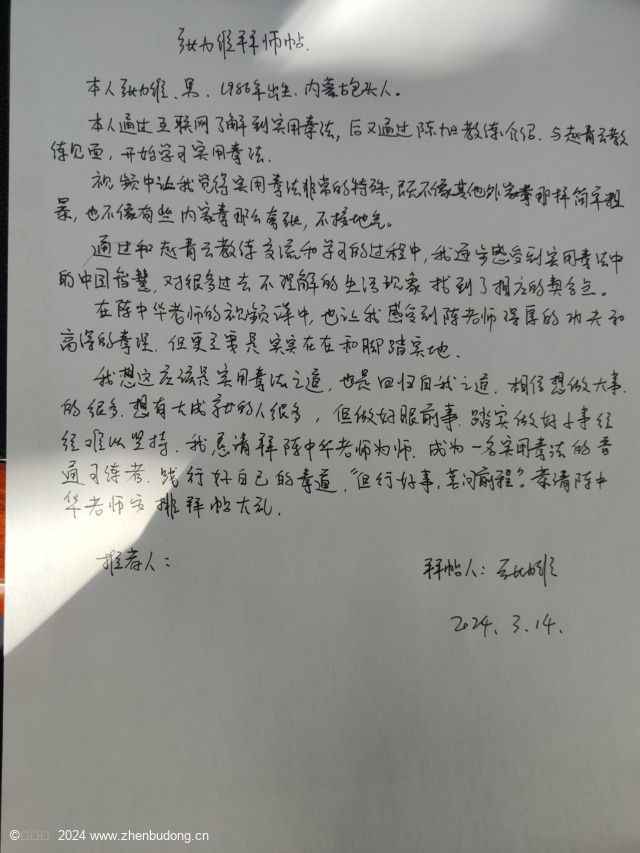 张力维拜师帖.
本人张力维、男、1986年出生.内蒙古包头人。
本人通过互联网了解到实用拳法,后又通过陈旭教练介绍.与赵青云教
练见面,开始学习实用拳法.
视频中让我觉得实用拳法非常的特殊,既不像其他外家拳那样简单粗
暴,也不像有些内家拳那么夸张,不接地气。
通过和赵青云教练交流和学习的过程中,我逐步感受到实用拳法中
的中国智慧,对很多过去不理解的生活现象找到了相应的契合点。
在陈中华老师的视频课中,也让我感受到陈老师深厚的功夫和
高深的拳理.但更主要是实实在在和脚踏实地.
我想这应该是实用拳法之道,也是回归自我之道.相信想做大事
的很多.想有大成就的人很多,但做好眼前事.踏实做好小事往
往难以坚持.我恳请拜陈中华老师为师.成为一名实用拳法的普
通习练者.践行好自己的拳道,"但行好事,莫问前程"。恭请陈中
华老师安排拜帖大礼.
推荐人:
拜帖人:张力维
2024.3.14.
© 2024 www.zhenbudong.cn